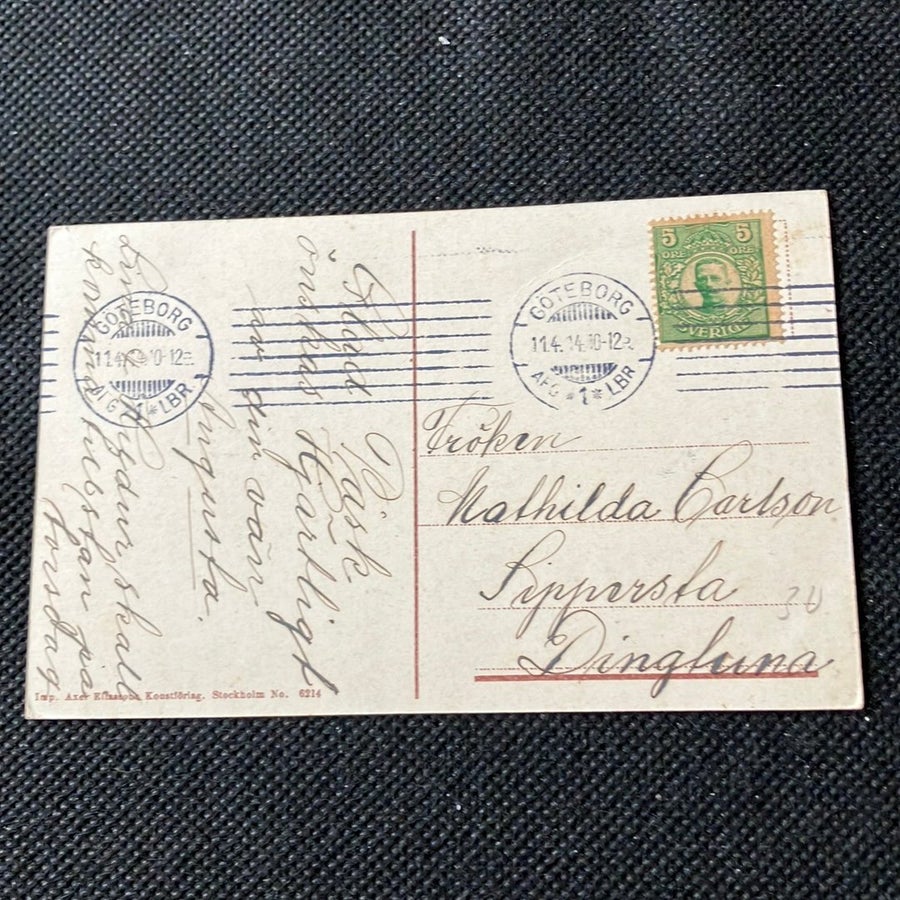 Glad Påsk
önskas Hjärtligt
av din vän
Augusta.
Hedvig skall
på
torsdag
5 5
ÖRE ÖRE
SVERIGE
GÖTEBORG
11.4.14.10-12
AFG *1* LBR
GÖTEBORG
11.4.14.10-12
AFG *1* LBR
Fröken
Mathilda Carlson
Sippersta
Dingtuna
Imp. Axel Eliassons Konstförlag. Stockholm No. 6214